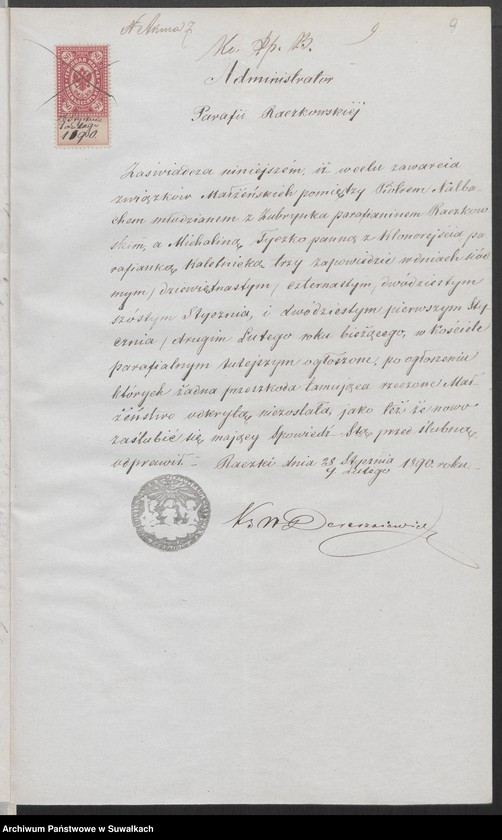 N. Aneksu 7
9 9
Administrator
Parafii Raczkowskiéj
Zaświadcza niniejszem, iż w celu zawarcia
związków Małżeńskich pomiędzy Piotrem Nalba-
chem młodzianem z Zubrynka parafianinem Raczkow-
skim, a Michaliną Tyczko panną z Klonorejścia pa-
rafianką Kaletnicką trzy zapowiedzie w dniach siód-
mym / dziewiętnastym / czternastym / dwódziestym
szóstym Stycznia, i dwódziestym pierwszym Sty-
cznia / drugim Lutego roku bieżącego, w Kościele
parafialnym tutejszym ogłoszone, po ogłoszeniu
których żadna przeszkoda tamująca rzeczone Mał-
żeństwo odkrytą niezostała, jako téż że nowo
zaślubić się mający Spowiedź Stą przed ślubną
odprawił. – Raczki dnia 28 Stycznia 1890 roku
Lutego
1890.
Archiwum Państwowe w Suwałkach